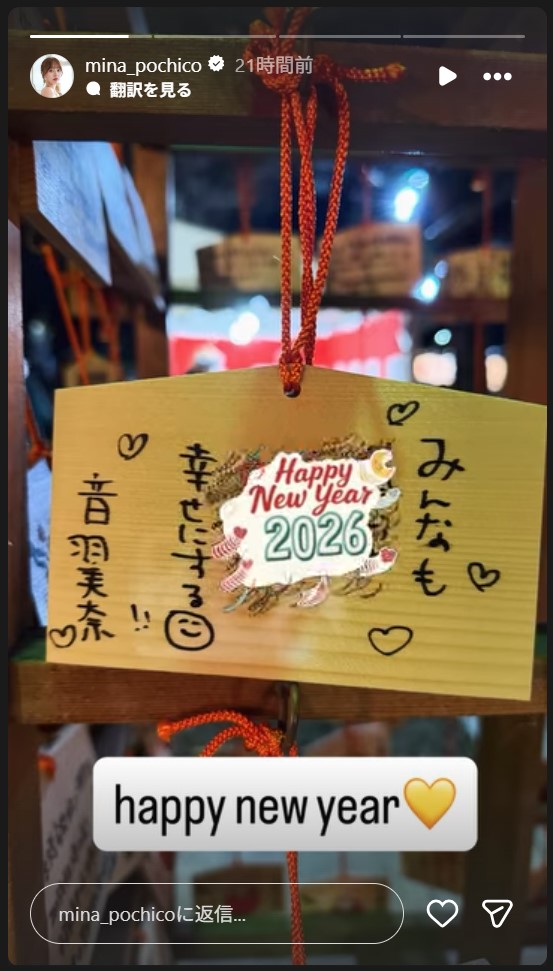 mina_pochico 21時間前
翻訳を見る
みんなも
Happy
New Year
2026
幸せにする
!!
音羽美奈
happy new year💛
mina_pochicoに返信...